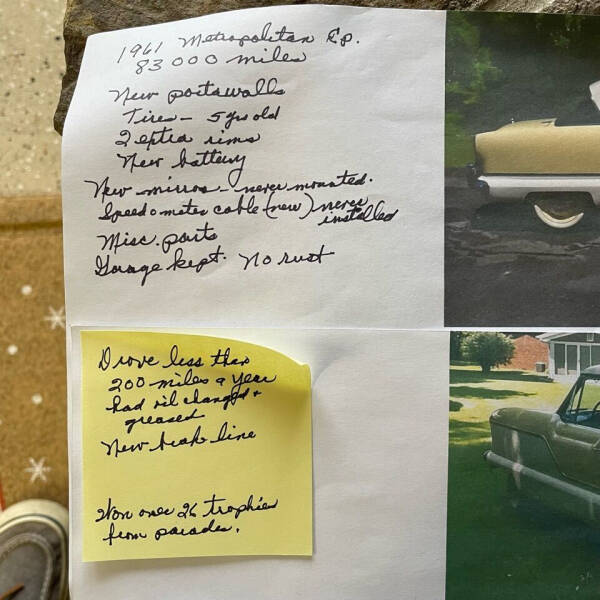 1961 Metropolitan Cp.
83000 miles
New portawalls
Tires - 5 yrs old
2 extra rims
New battery
New mirror - never mounted.
Speedometer cable (new) never
installed
Misc. parts
Garage kept. No rust
Drove less than
200 miles a year
had oil changed +
greased
New break line
Won over 26 trophies
from parades.